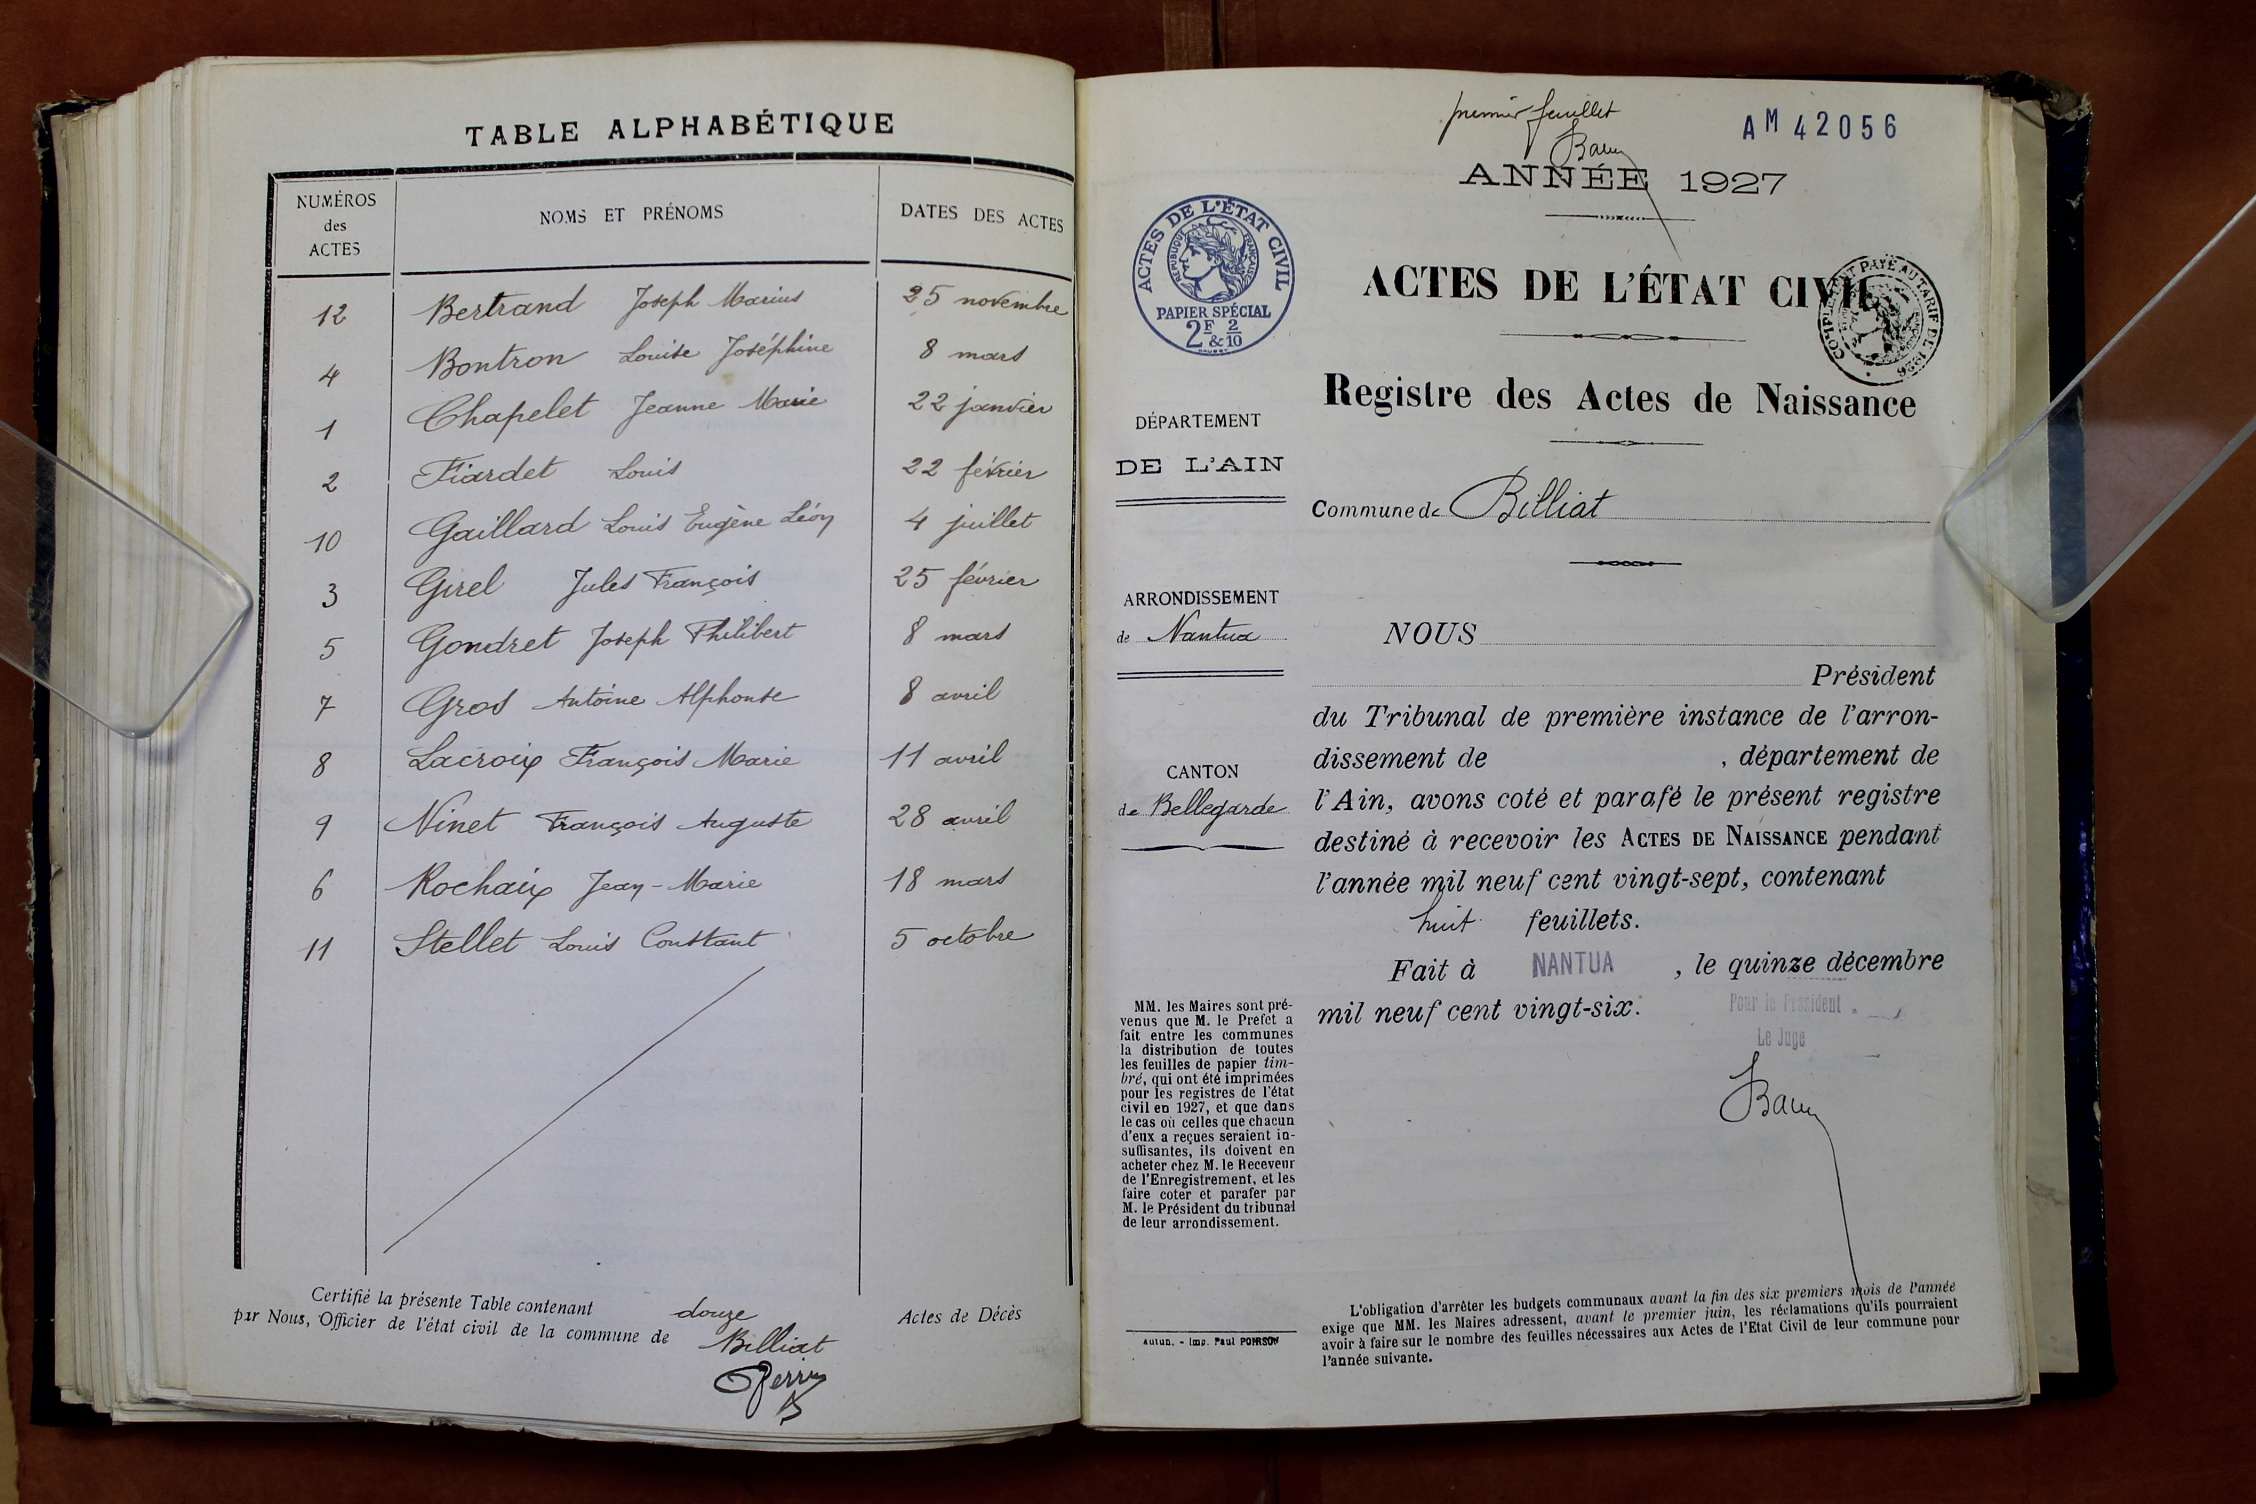 TABLE ALPHABÉTIQUE
NUMÉROS des ACTES NOMS ET PRÉNOMS DATES DES ACTES
12 Bertrand Joseph Marius 25 novembre
4 Bontron Louise Joséphine 8 mars
1 Chapelet Jeanne Marie 22 janvier
2 Fiardet Louis 22 février
10 Gaillard Louis Eugène Léon 4 juillet
3 Girel Jules François 25 février
5 Gondret Joseph Philibert 8 mars
7 Gros Antoine Alphonse 8 avril
8 Lacroix François Marie 11 avril
9 Ninet François Auguste 28 avril
6 Rochaix Jean-Marie 18 mars
11 Stellet Louis Constant 5 octobre
Certifié la présente Table contenant douze Actes de Décès
par Nous, Officier de l'état civil de la commune de Billiat
Perrin
premier feuillet
AM 42056
ANNÉE 1927
ACTES DE L'ÉTAT CIVIL
RÉPUBLIQUE FRANÇAISE
PAPIER SPÉCIAL
2F & 2/10
ACTES DE L'ÉTAT CIVIL
COMPLÉMENT PAYÉ AU TARIF DE 1926
Registre des Actes de Naissance
DÉPARTEMENT
DE L'AIN
Commune de Billiat
ARRONDISSEMENT
de Nantua
CANTON
de Bellegarde
NOUS
Président
du Tribunal de première instance de l'arron-
dissement de , département de
l'Ain, avons coté et parafé le présent registre
destiné à recevoir les ACTES DE NAISSANCE pendant
l'année mil neuf cent vingt-sept, contenant
huit feuillets.
Fait à NANTUA , le quinze décembre
mil neuf cent vingt-six.
Pour le Président
Le Juge
MM. les Maires sont pré-
venus que M. le Préfet a
fait entre les communes
la distribution de toutes
les feuilles de papier tim-
bré, qui ont été imprimées
pour les registres de l'état
civil en 1927, et que dans
le cas où celles que chacun
d'eux a reçues seraient in-
suffisantes, ils doivent en
acheter chez M. le Receveur
de l'Enregistrement, et les
faire coter et parafer par
M. le Président du tribunal
de leur arrondissement.
Autun. - Imp. Paul POHRSON
L'obligation d'arrêter les budgets communaux avant la fin des six premiers mois de l'année
exige que MM. les Maires adressent, avant le premier juin, les réclamations qu'ils pourraient
avoir à faire sur le nombre des feuilles nécessaires aux Actes de l'Etat Civil de leur commune pour
l'année suivante.